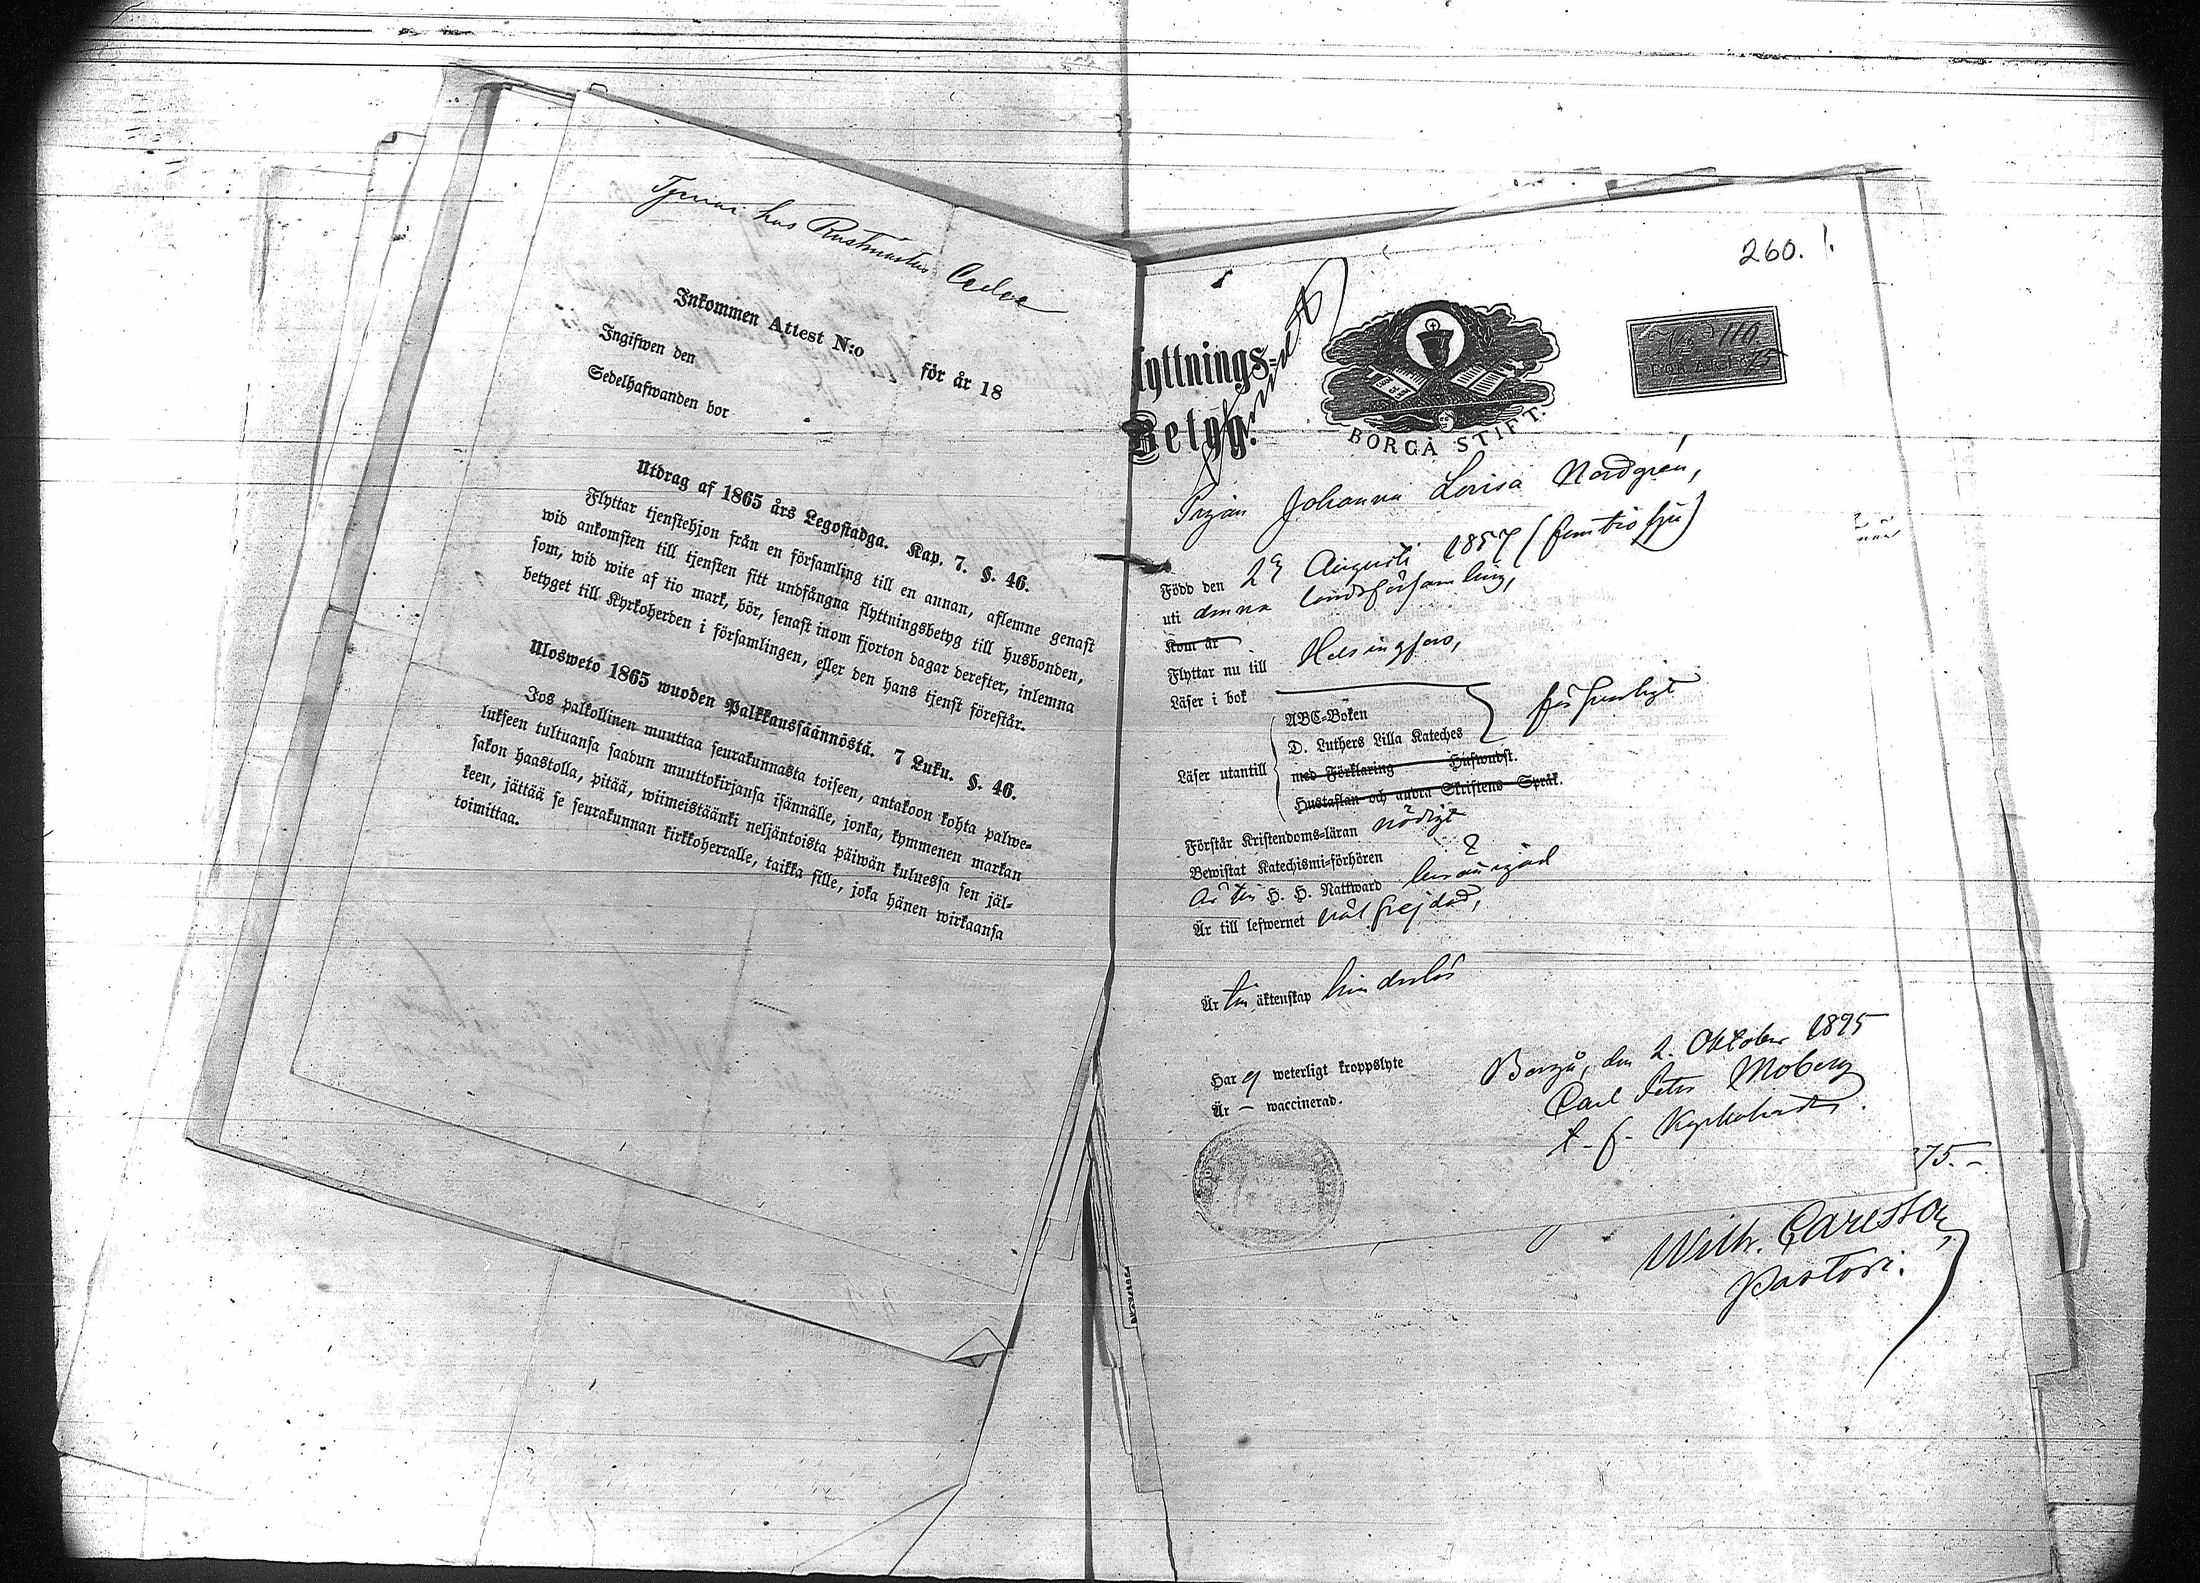 Tjenar hos Rustmästar Ceder
Inkommen Attest N:o för år 18
Ingifwen den
Sedelhafwanden bor
Utdrag af 1865 års Legostadga. Kap. 7. §. 46.
Flyttar tjenstehjon från en församling till en annan, aflemne genast
wid ankomsten till tjensten sitt undfångna flyttningsbetyg till husbonden,
som, wid wite af tio mark, bör, senast inom fjorton dagar derefter, inlemna
betyget till Kyrkoherden i församlingen, eller den hans tjenst förestår.
Ulosweto 1865 wuoden Palkkaussäännöstä. 7 Luku. §. 46.
Jos palkollinen muuttaa seurakunnasta toiseen, antakoon kohta palwe-
lukseen tultuansa saadun muuttokirjansa isännälle, jonka, kymmenen markan
sakon haastolla, pitää, wiimeistäänki neljäntoista päiwän kuluessa sen jäl-
keen, jättää se seurakunnan kirkkoherralle, taikka sille, joka hänen wirkaansa
toimittaa.
260.
lyttnings-
Betyg.
BORGÅ STIFT.
No 110
FÖR ÅR 1875
Pigan Johanna Lovisa Nordgrén,
Född den 29 Augusti 1857 (femtio sju)
uti denna landsförsamling,
Kom år
Flyttar nu till Helsingfors,
Läser i bok
Läser utantill
ABC-Boken
D. Luthers Lilla Kateches
med Förklaring Huswudst.
Hustaflan och andra Skriftens Språk.
försvarligt
Förstår Kristendoms-läran nödigt
Bewistat Katechismi-förhören ?
Är till H. H. Nattward
Är till lefwernet väl frejdad,
Är till äktenskap hinderlös
Har ej weterligt kroppslyte
Är — waccinerad.
Borgå, den 2. Oktober 1875
Carl Petr Moberg
t. f. Kyrkoherde.
75.-
Wilh. Carlsson,
Pastori.